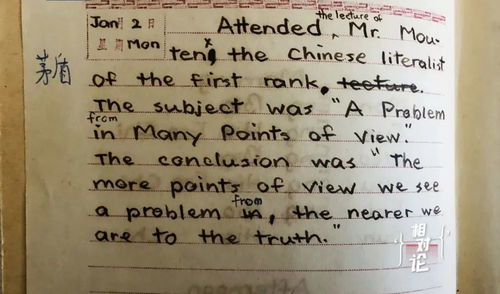 Jan 月 2 日
星期 Mon
the lecture of
Attended Mr. Mou-
ten, the Chinese literalist
茅盾
of the first rank. lecture.
The subject was "A Problem
from
in Many Points of View."
The conclusion was "The
more points of view we see
from
a problem in, the nearer we
are to the truth."
相对论